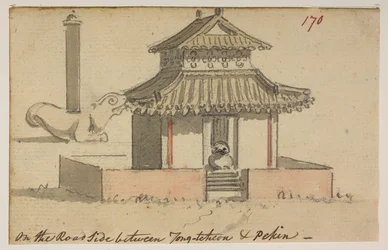 170
On the Road Side between Tong-tcheou & Pekin —